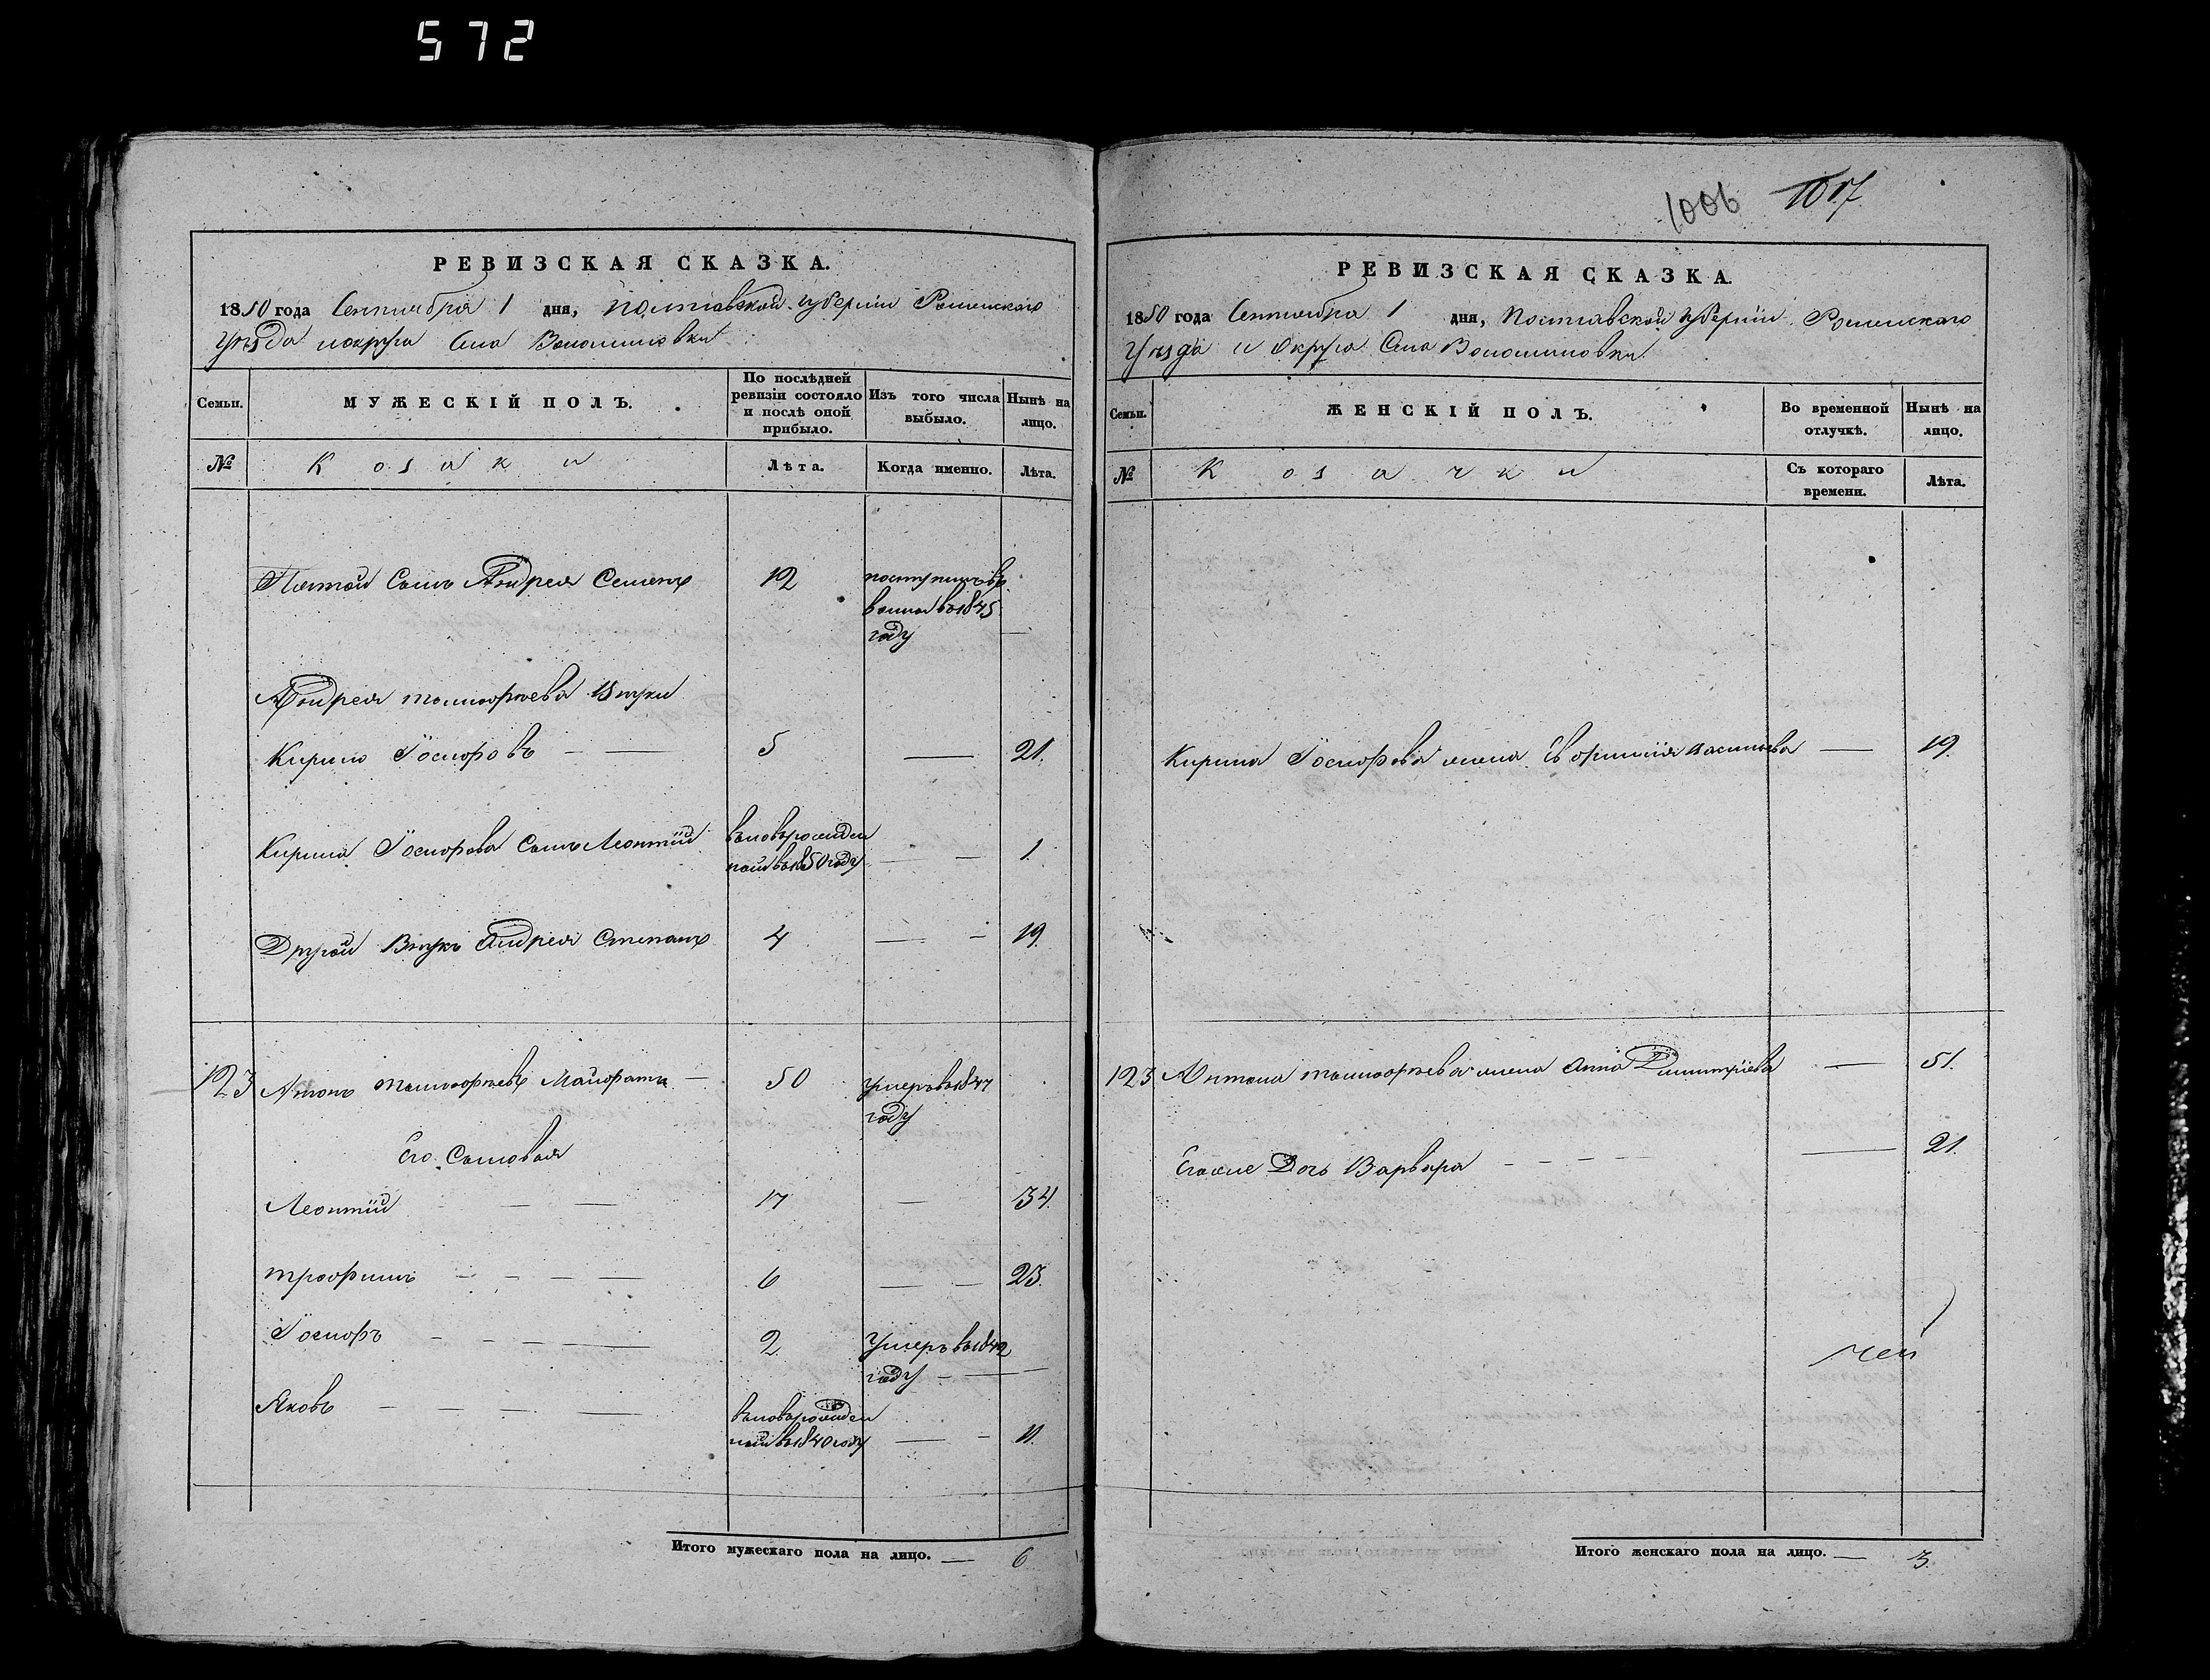 572
1006 1017
РЕВИЗСКАЯ СКАЗКА.
1850 года Сентября 1 дня, Полтавской Губерніи Роменскаго
Уѣзда и округа Села Волошиновки
Семьи.
МУЖЕСКІЙ ПОЛЪ.
По послѣдней
ревизіи состояло
и послѣ оной
прибыло.
Изъ того числа
выбыло.
Нынѣ на
лицо.
№
Козаки
Лѣта.
Когда именно.
Лѣта.
Пятой Сынъ Андрея Семенъ 12 поступилъ въ
въ 1845
году —
Андрея Тимофѣева Внуки
Кирило Іосифовъ — — 5 — 21.
Кирила Іосифова Сынъ Леонтій вновьрожден
ной въ 1850 году — — 1.
Другой Внукъ Андрея Степанъ 4 — — 19.
123 Антонъ Тимофѣевъ — 50 Умеръ въ 1847
году
Его Сыновья
Леонтій — — 17 — 34.
Трофимъ — — — — 6 — — 23.
Іосифъ — — — — 2 Умеръ въ 1842
году — —
Яковъ — — — — вновьрожден
ной въ 1840 году — — 11.
Итого мужескаго пола на лицо. — 6
РЕВИЗСКАЯ СКАЗКА.
1850 года Сентября 1 дня, Полтавской Губерніи Роменскаго
Уѣзда и Округа Села Волошиновки.
Семьи.
ЖЕНСКІЙ ПОЛЪ.
Во временной
отлучкѣ.
Нынѣ на
лицо.
№
Козачки
Съ котораго
времени.
Лѣта.
Кирила Іосифова жена Васильева — 19.
123 Антона Тимофѣева жена Анна Димитріева — 51.
Егоже Дочь Варвара — — — — — 21.
Итого женскаго пола на лицо. — 3.